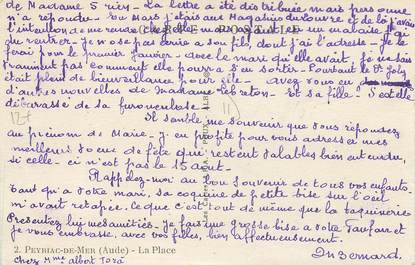 de Madame S rien - La lettre a été distribuée mais personne
n'a répondu - En Mars j'étais aux Magasins du Louvre et de là j'avais
l'intention de me rendre chez elle - mais j'ai eu un malaise, j'ai
du rentrer - je n'ose pas écrire à son fils, dont j'ai l'adresse - Je le
ferai pour le premier Janvier - avec le mari qu'elle avait, je ne sais
vraiment pas comment elle pourra s'en sortir - Pourtant le Dr Joly
était plein de bienveillance pour elle - avez vous eu
d'autres nouvelles de Madame Lebreton - Et sa fille - S'est elle
débarassé de sa furonculose -
Il semble me souvenir que vous répondez
au prénom de Marie - J'en profite pour vous adresser mes
meilleurs voeux de fête qui restent valables bien entendu,
si celle-ci n'est pas le 15 août -
Rappelez-moi au bon souvenir de tous vos enfants
tant qu'à votre mari, sa coquine de petite bise sur l'oeil
m'avait retapée. Ce que c'est tout de même que la taquinerie
Présentez lui mes amitiés - Je fais une grosse bise à votre Fanfan et
je vous embrasse, avec vos filles, bien affectueusement.
2. PEYRIAC-DE-MER (Aude) - La Place
M Bernard.
chez Mme Albert Tora